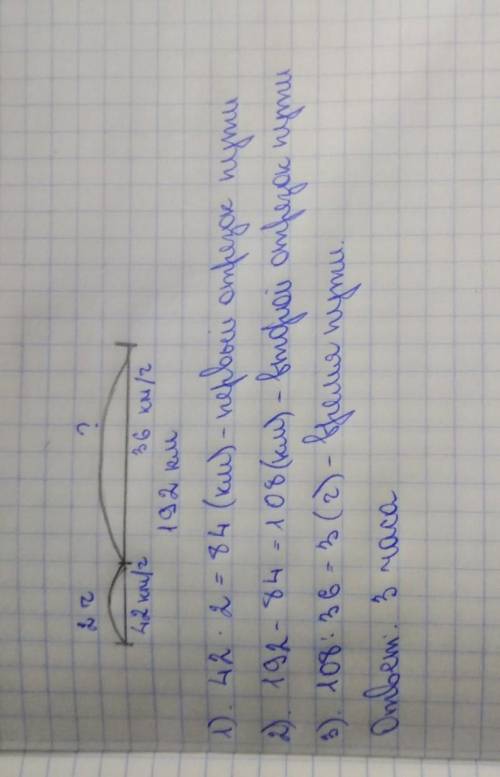 2 ч ?
42 км/ч 36 км/ч
192 км
1). 42 · 2 = 84 (км) - первый отрезок пути
2). 192 - 84 = 108 (км) - второй отрезок пути
3). 108 : 36 = 3 (ч) - время пути.
Ответ: 3 часа